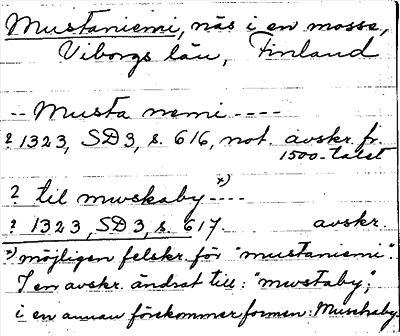 Mustaniemi, näs i en mosse,
Viborgs län, Finland
-- Musta nemi ----
? 1323, SD 3, s. 616, not. avskr. fr.
1500-talet
? til muskaby x) ----
? 1323, SD 3, s. 617. avskr.
x) möjligen felskr. för "mustaniemi".
I en avskr. ändrat till: "mustaby";
i en annan förekommer formen: Muschaby.